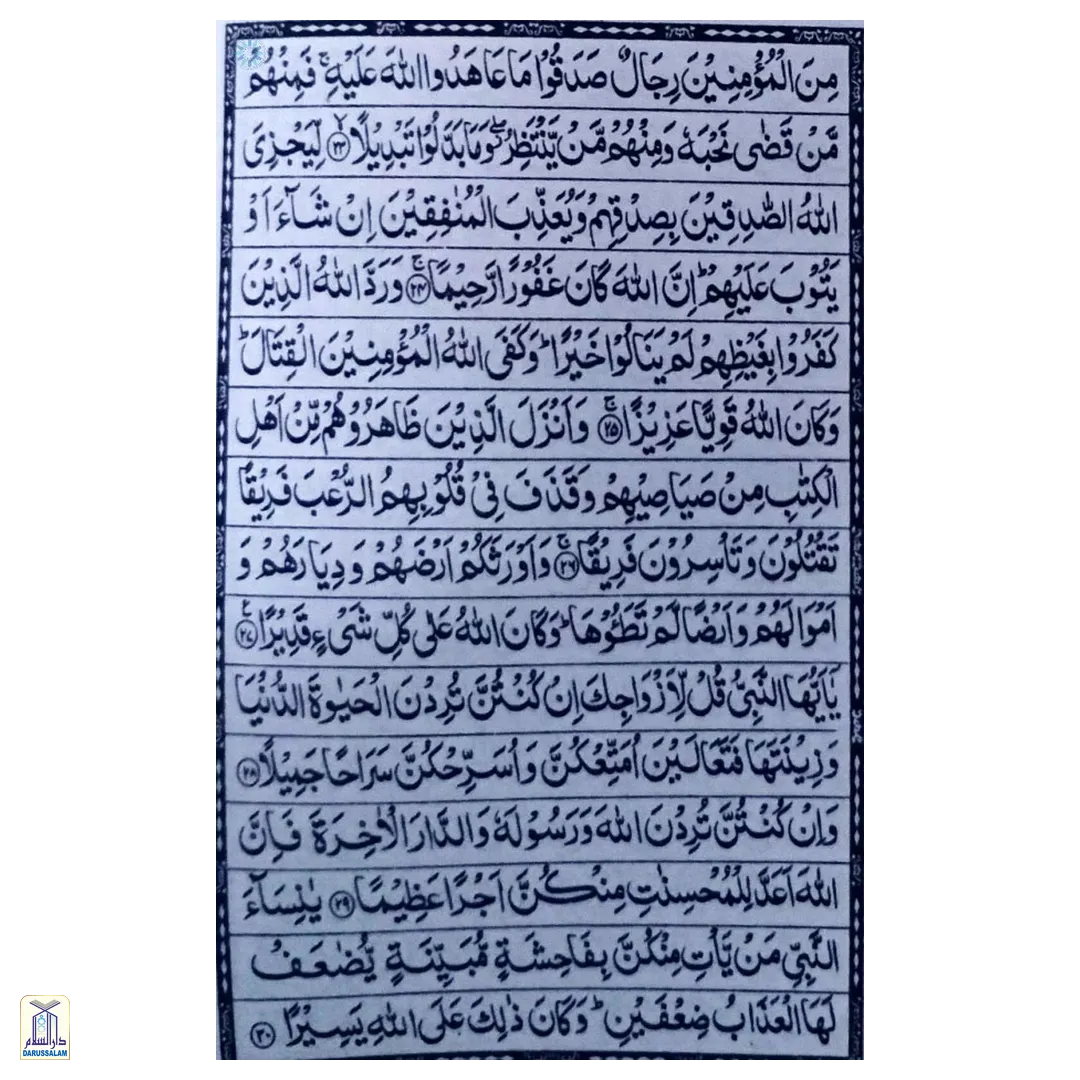 مِنَ الْمُؤْمِنِيْنَ رِجَالٌ صَدَقُوْا مَا عَاهَدُوا اللّٰهَ عَلَيْهِ ۚ فَمِنْهُمْ
مَّنْ قَضٰى نَحْبَهٗ وَمِنْهُمْ مَّنْ يَّنْتَظِرُ ۖ وَمَا بَدَّلُوْا تَبْدِيْلًا ﴿۲۳﴾ لِّيَجْزِيَ
اللّٰهُ الصّٰدِقِيْنَ بِصِدْقِهِمْ وَيُعَذِّبَ الْمُنٰفِقِيْنَ اِنْ شَآءَ اَوْ
يَتُوْبَ عَلَيْهِمْ ؕ اِنَّ اللّٰهَ كَانَ غَفُوْرًا رَّحِيْمًا ﴿۲۴﴾ وَرَدَّ اللّٰهُ الَّذِيْنَ
كَفَرُوْا بِغَيْظِهِمْ لَمْ يَنَالُوْا خَيْرًا ؕ وَكَفَى اللّٰهُ الْمُؤْمِنِيْنَ الْقِتَالَ ؕ
وَكَانَ اللّٰهُ قَوِيًّا عَزِيْزًا ﴿۲۵﴾ وَاَنْزَلَ الَّذِيْنَ ظَاهَرُوْهُمْ مِّنْ اَهْلِ
الْكِتٰبِ مِنْ صَيَاصِيْهِمْ وَقَذَفَ فِيْ قُلُوْبِهِمُ الرُّعْبَ فَرِيْقًا
تَقْتُلُوْنَ وَتَاْسِرُوْنَ فَرِيْقًا ﴿۲۶﴾ وَاَوْرَثَكُمْ اَرْضَهُمْ وَدِيَارَهُمْ وَ
اَمْوَالَهُمْ وَاَرْضًا لَّمْ تَطَـُٔوْهَا ؕ وَكَانَ اللّٰهُ عَلٰى كُلِّ شَيْءٍ قَدِيْرًا ﴿۲۷﴾
يٰٓاَيُّهَا النَّبِيُّ قُلْ لِّاَزْوَاجِكَ اِنْ كُنْتُنَّ تُرِدْنَ الْحَيٰوةَ الدُّنْيَا
وَزِيْنَتَهَا فَتَعَالَيْنَ اُمَتِّعْكُنَّ وَاُسَرِّحْكُنَّ سَرَاحًا جَمِيْلًا ﴿۲۸﴾
وَاِنْ كُنْتُنَّ تُرِدْنَ اللّٰهَ وَرَسُوْلَهٗ وَالدَّارَ الْاٰخِرَةَ فَاِنَّ
اللّٰهَ اَعَدَّ لِلْمُحْسِنٰتِ مِنْكُنَّ اَجْرًا عَظِيْمًا ﴿۲۹﴾ يٰنِسَآءَ
النَّبِيِّ مَنْ يَّاْتِ مِنْكُنَّ بِفَاحِشَةٍ مُّبَيِّنَةٍ يُّضٰعَفْ
لَهَا الْعَذَابُ ضِعْفَيْنِ ؕ وَكَانَ ذٰلِكَ عَلَى اللّٰهِ يَسِيْرًا ﴿۳۰﴾
دارالسلام
DARUSSALAM